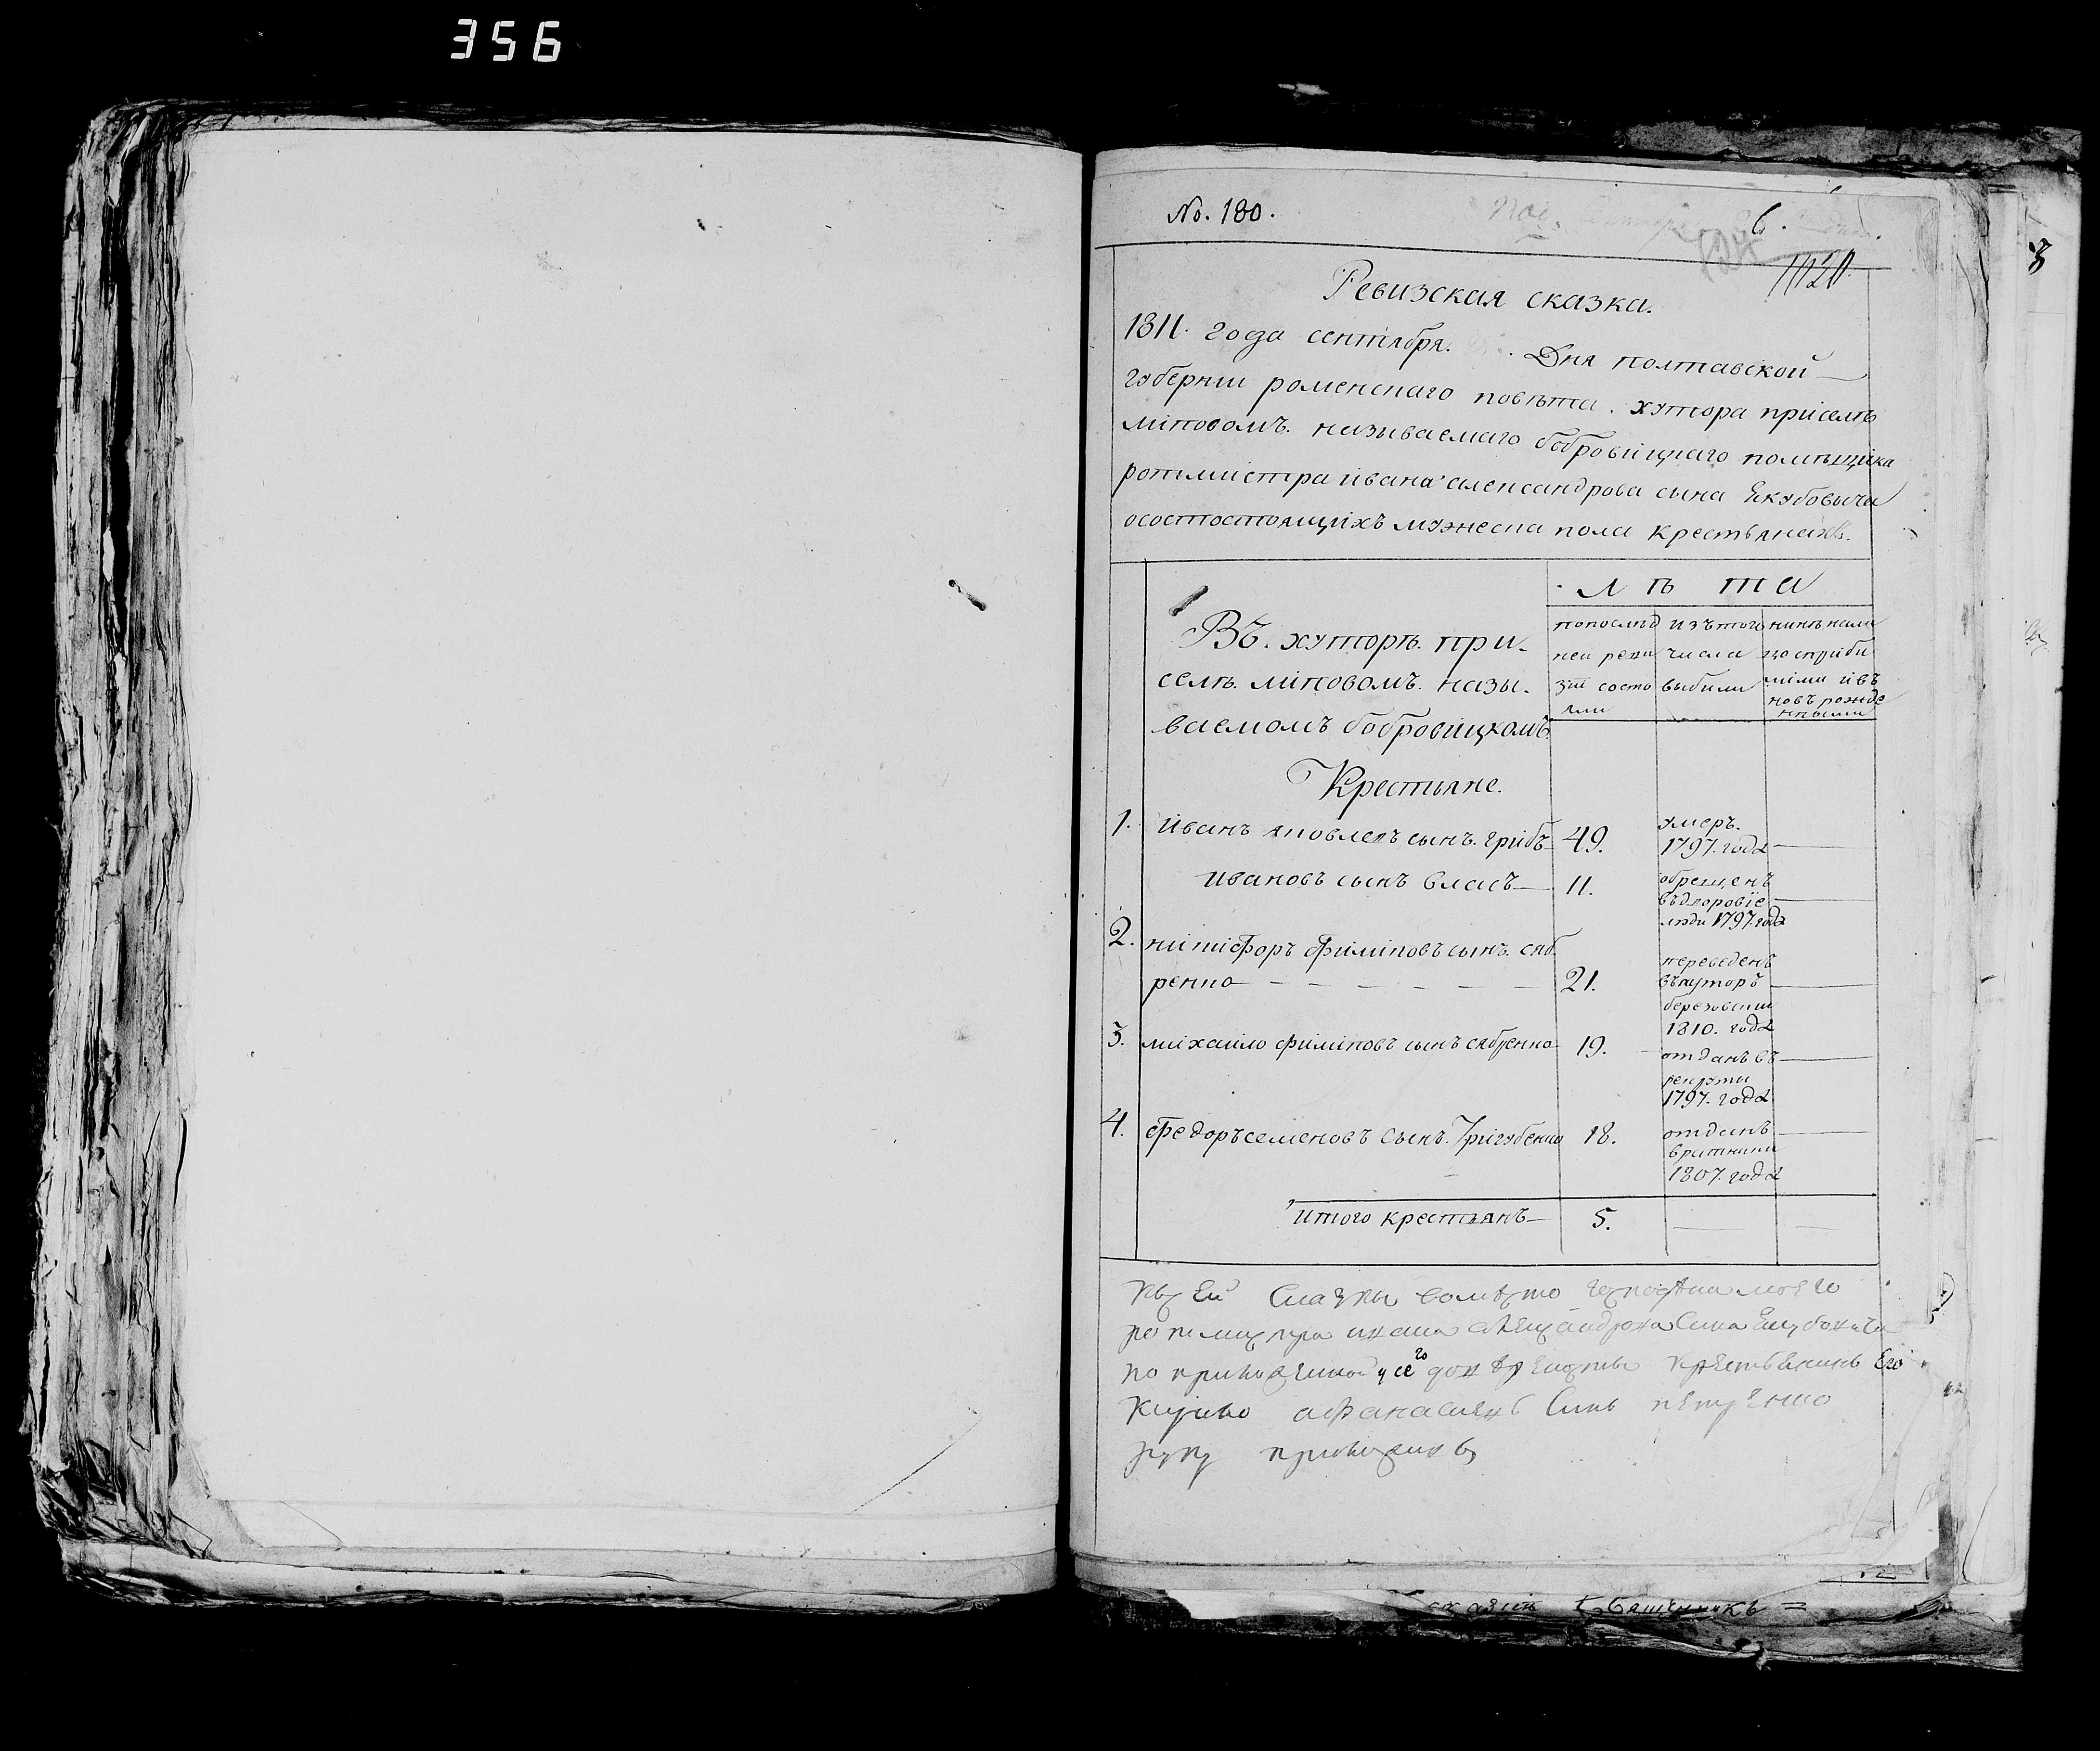 356
No. 180.
6.
1020
3
Ревизская сказка.
1811. года сентября. Дня полтавской
губернїи роменскаго повѣта. хутора приселѣ
липовомъ. называемаго бобровицкаго помѣщика
ротмистра ивана александрова сына Якубовыча
осостостоящихъ мужеска пола крестьянахъ.
Въ. хуторѣ. при-
селѣ. липовомъ. назы-
ваемомъ бобровицкомъ
лѣта
попослѣд
ней реви
зїи состо
яли
изътого
числа
выбыли
нинѣ нали
цо
нновь рожде
нными
Крестьяне.
1. иванъ яковлевъ сынъ. грибъ 49. умеръ. 1797. года
ивановъ сынъ власъ 11. обращенъ въдворовїе люди 1797. года
2. никифоръ филиповъ сынъ. сяб
ренко 21. переведенъ въхуторъ березовскїи 1810. года
3. михайло филиповъ сынъ сябренко 19. отданъ въ рекруты 1797. года
4. федоръ семеновъ сынъ. Тригубенко 18. отданъ вратники 1807. года
итого крестьянъ 5.
Ксей Сказки вомѣсто господина моего
ротмистра ивана александрова Сина Якубовича
по прикозанию его довѣренности крестьянинъ Его
Кирило афанасиевъ Синъ петренко
руку приложилъ